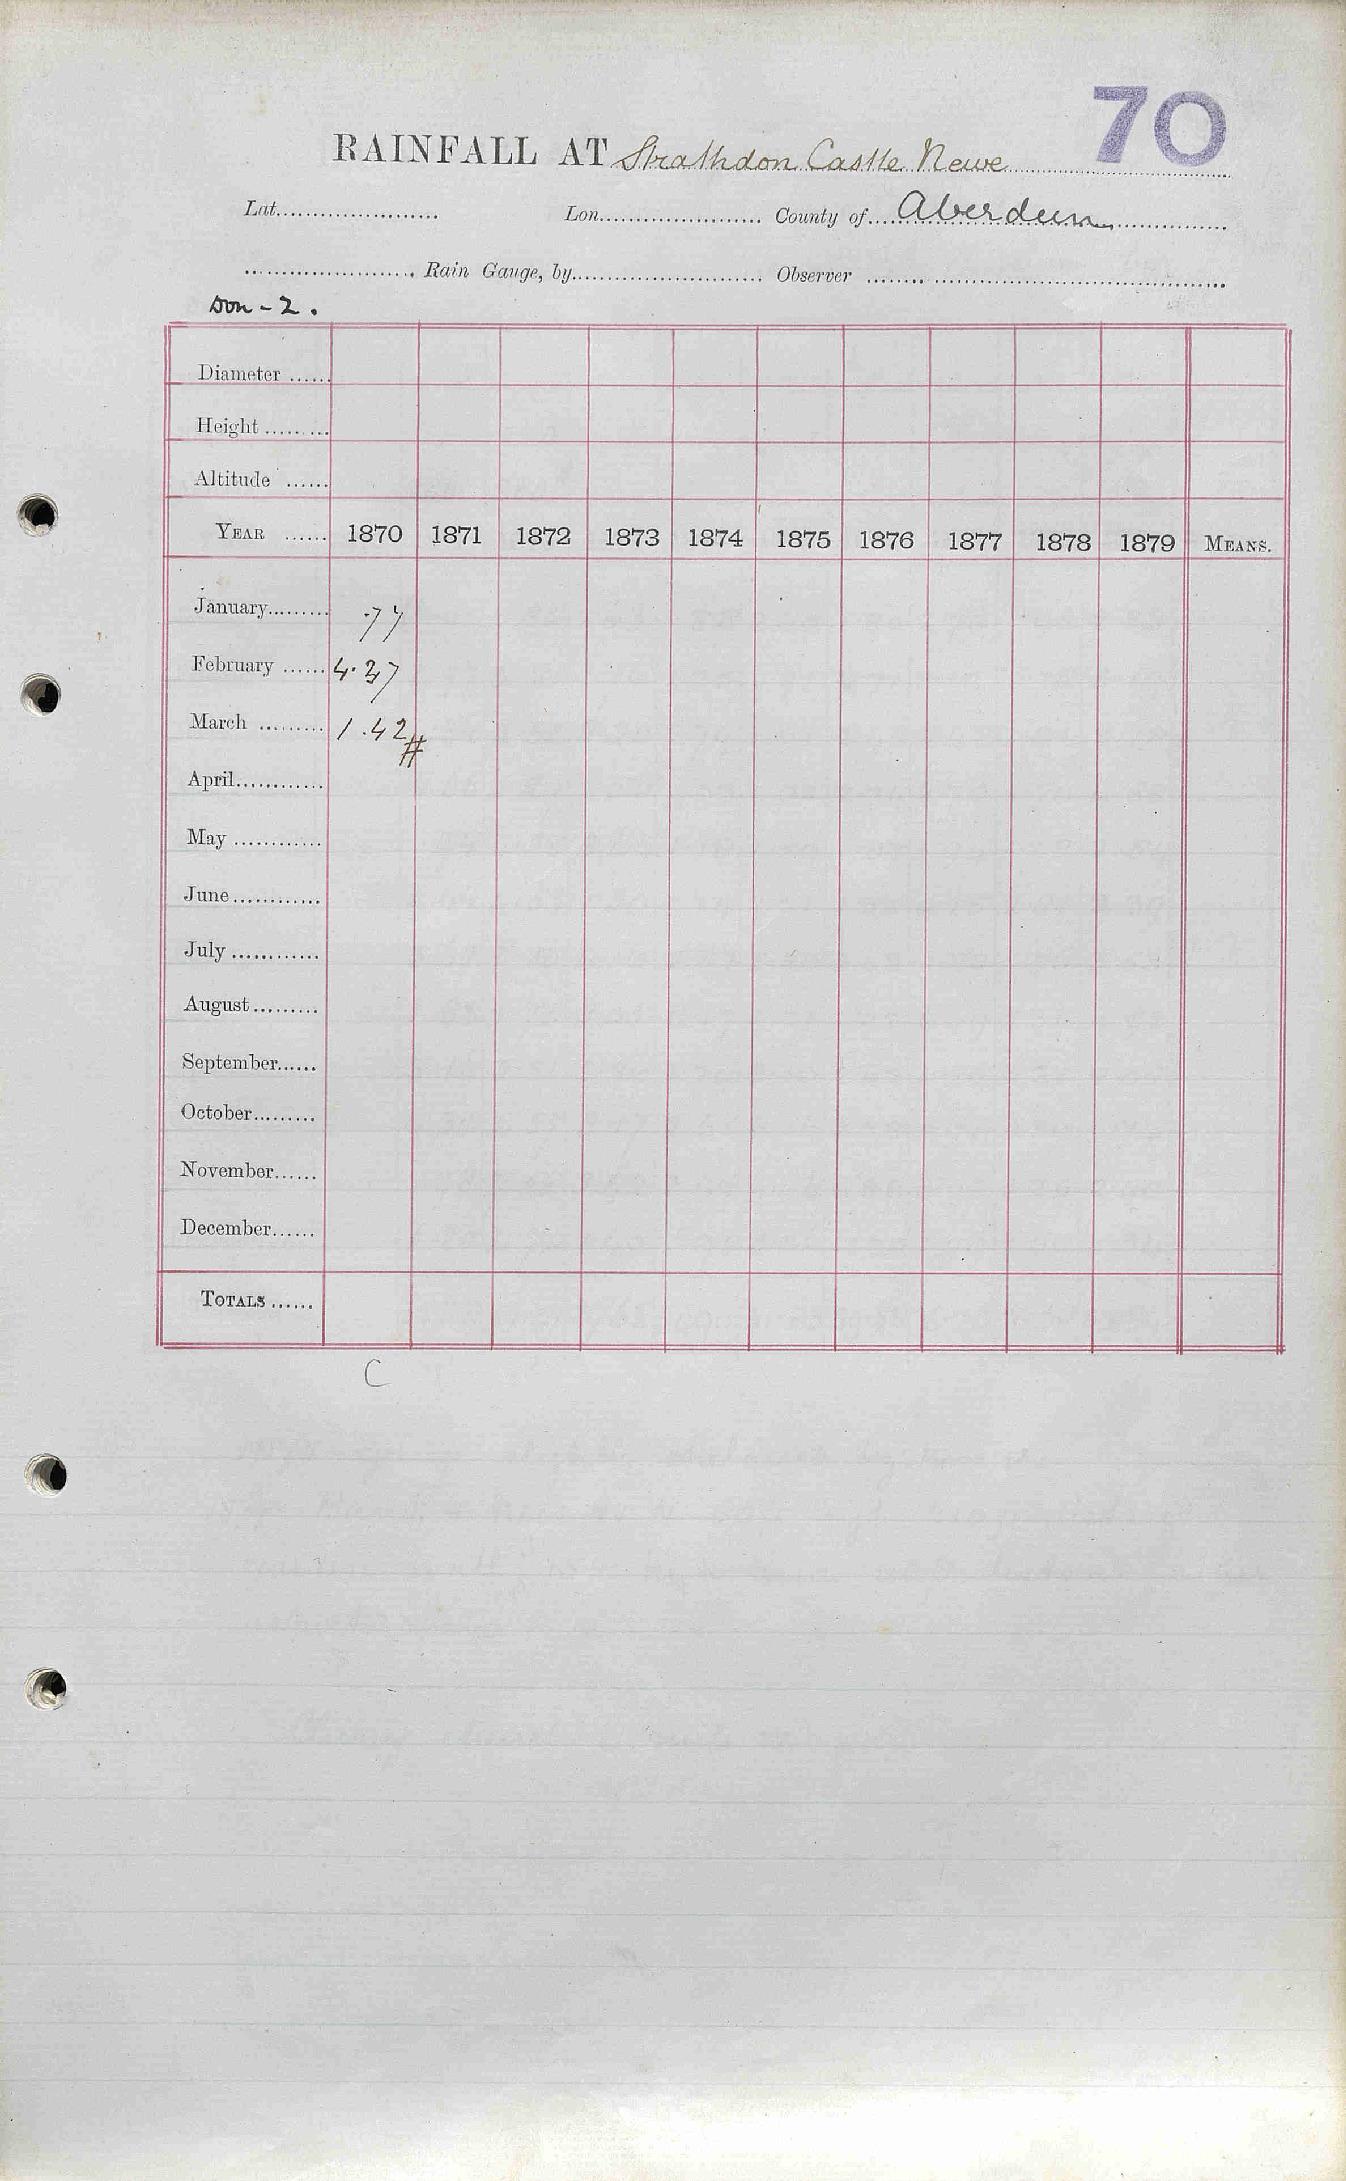 70
RAINFALL AT Strathdon Castle Newe
Lat...................... Lon...................... County of....Aberdeen
....................... Rain Gauge, by.......................... Observer ..........................................
Don - 2.
Diameter ......
Height .........
Altitude ......
YEAR ...... 1870 1871 1872 1873 1874 1875 1876 1877 1878 1879 MEANS.
January......... .77
February ...... 4.37
March ......... 1.42#
April............
May ............
June............
July ............
August.........
September......
October.........
November......
December......
TOTALS ......
C